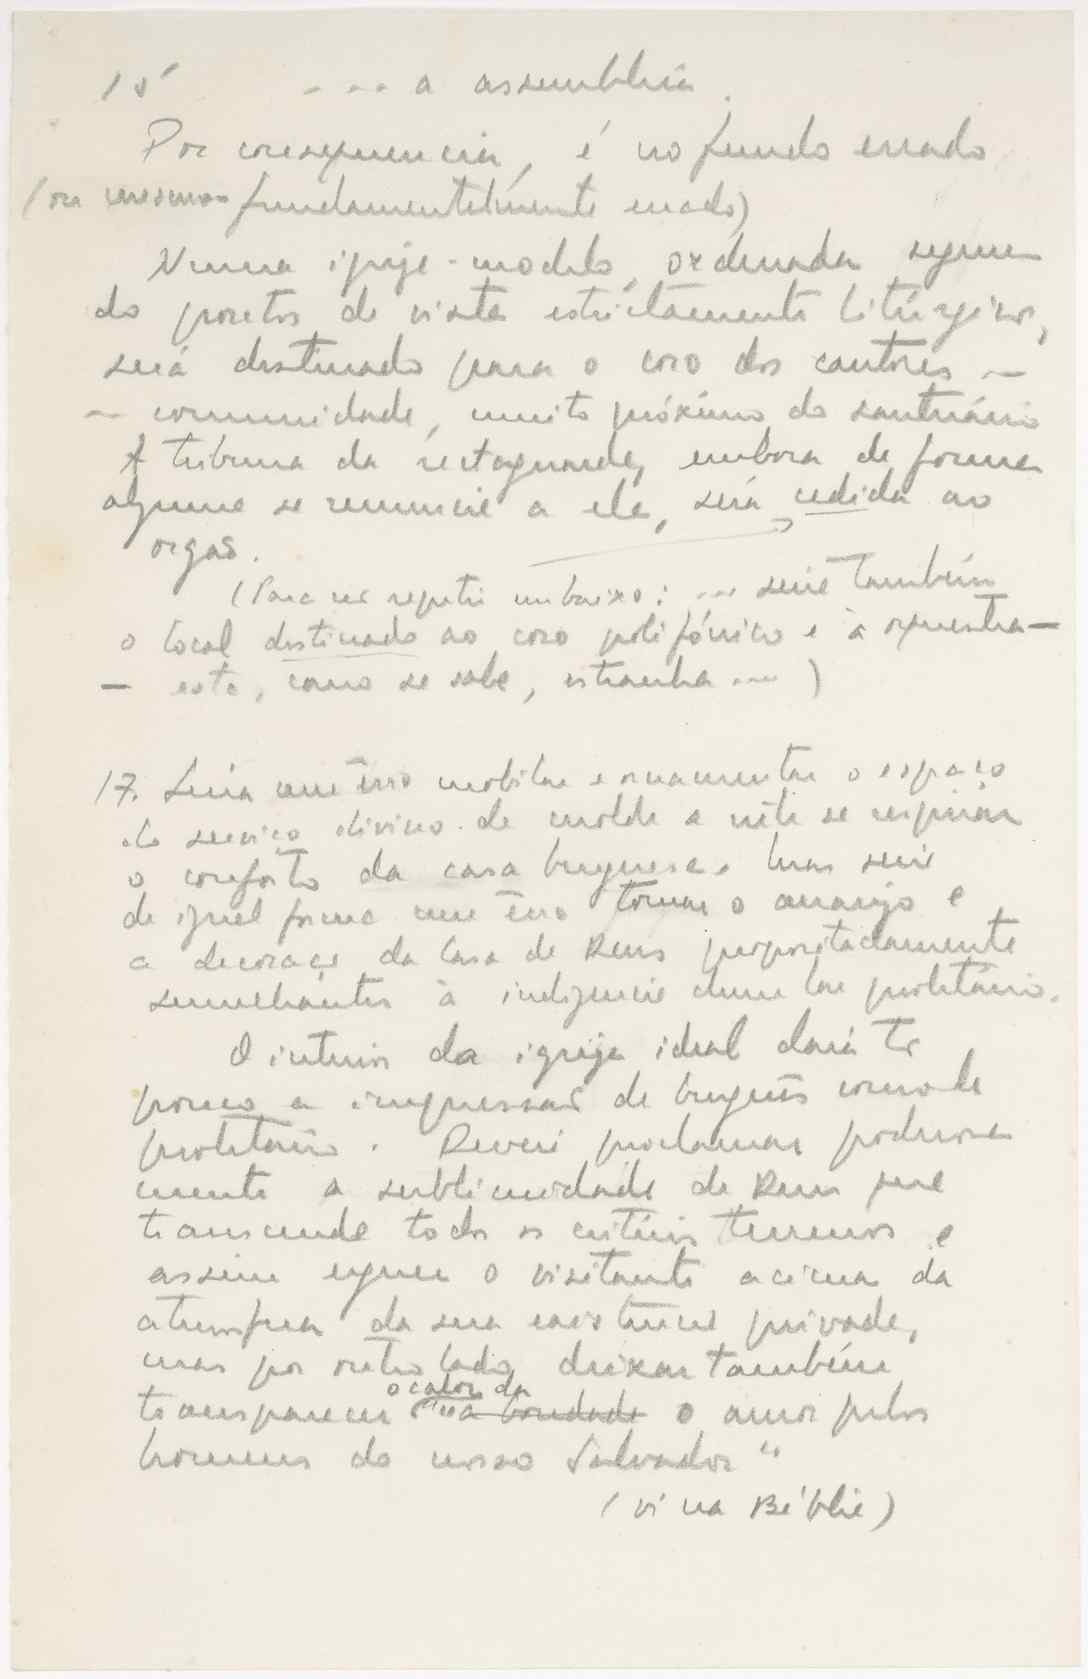 15 --- a assembleia.
Por consequencia, é no fundo errado
(ou mesmo fundamentalmente errado)
Numa igreja-modelo, ordenada segun
do pontos de vista estrictamente litúrgicos,
será destinado para o coro dos cantores —
— comunidade, muito próximo do santuário
A tribuna da rectaguarda, embora de forma
alguma se renuncie a ela, será cedida ao
orgão.
(Para ver repetir embaixo: --- seria também
o local destinado ao coro polifónico e à orquestra —
— esta, como se sabe, estranha --- )
17. Seria um êrro mobilar e ornamentar o espaço
do serviço divino de molde a nele se respirar
o conforto da casa burguesa. Mas seria
de igual forma um êrro tornar o arranjo e
a decoraçã da Casa de Deus propositadamente
semelhantes à indigencia dum lar proletário.
O interior da igreja ideal dará tã
pouco a impressão de burguês como de
proletário. Deverá proclamar poderosa
mente a sublimidade de Deus que
transcende todos os critérios terrenos e
assim erguer o visitante acima da
atmosfera da sua existência privada,
mas por outro lado, deixar também
o calor da
transparecer a bondade o amor pelos
homens do nosso Salvador"
(vi na Bíblia)